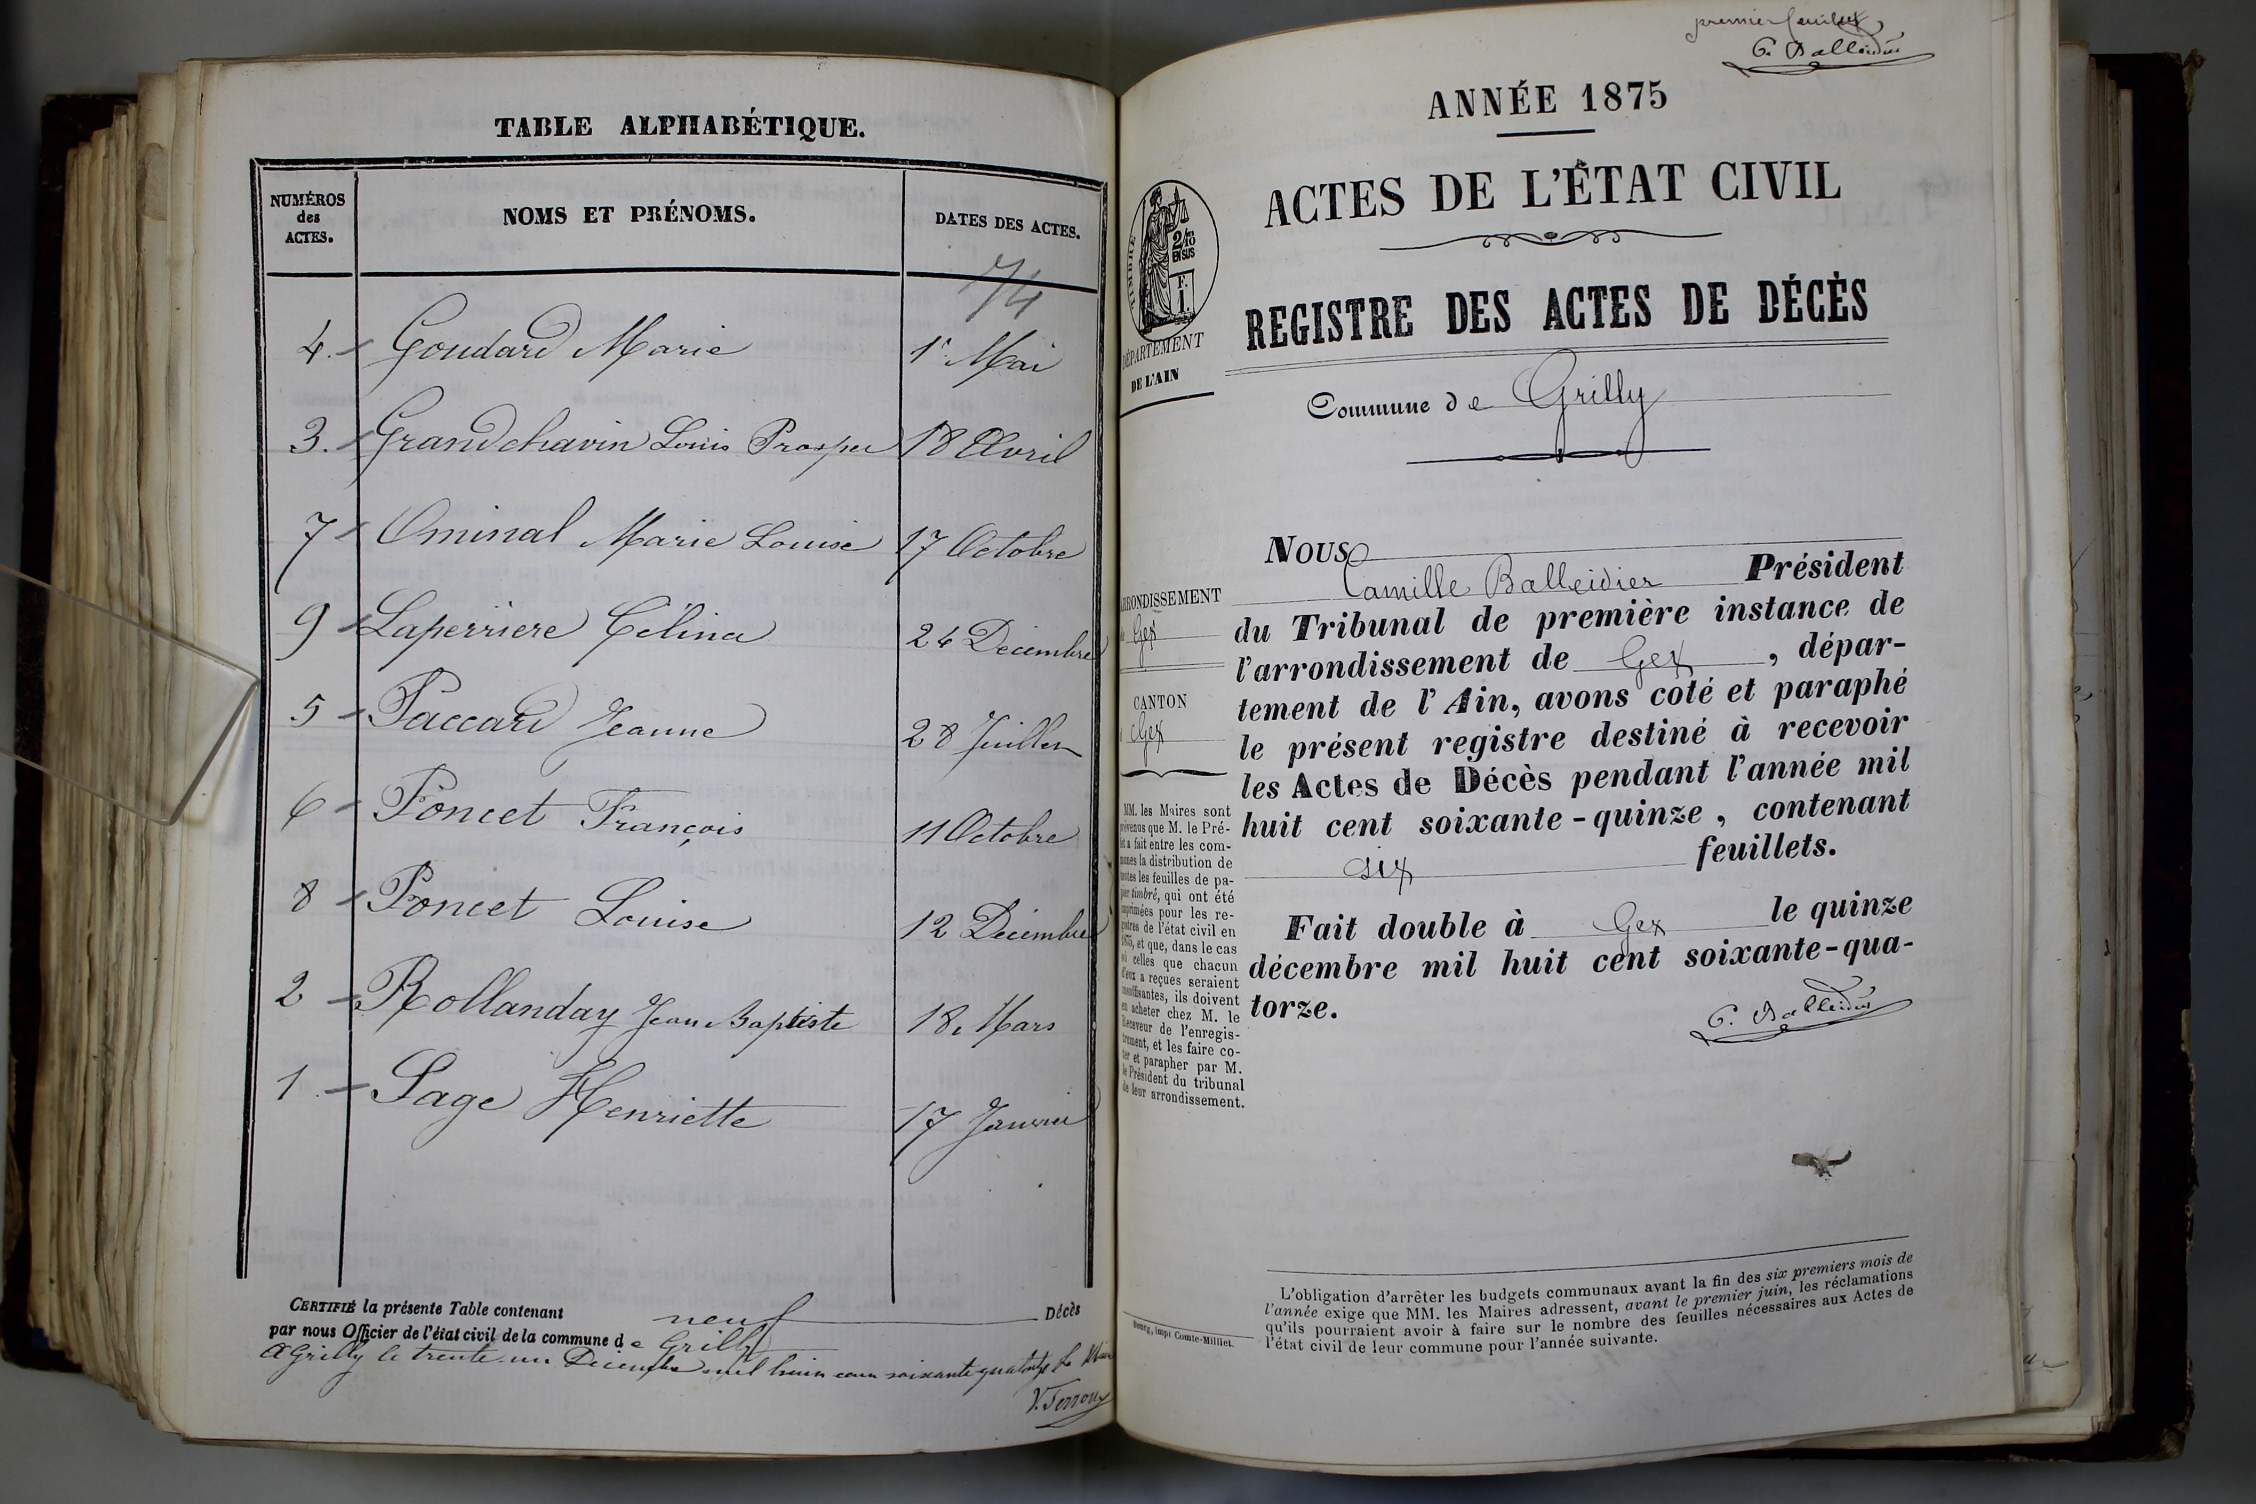 TABLE ALPHABÉTIQUE.
NUMÉROS des ACTES.
NOMS ET PRÉNOMS.
DATES DES ACTES.
74
4. Goudard Marie 1r Mai
3. Grandchavin Louis Prosper 18 Avril
7 Ominal Marie Louise 17 Octobre
9 Laperriere Célina 24 Décembre
5 Paccard Jeanne 28 Juillet
6 Poncet François 11 Octobre
8 Poncet Louise 12 Décembre
2 Rollanday Jean Baptiste 18 Mars
1. Sage Henriette 17 Janvier
CERTIFIÉ la présente Table contenant neuf Décès
par nous Officier de l'état civil de la commune de Grilly
A Grilly le trente un Décembre mil huit cent soixante quatorze Le Maire
premier feuillet
C. Balleidier
ANNÉE 1875
ACTES DE L'ÉTAT CIVIL
TIMBRE
2/10 EN SUS
F. 1
REGISTRE DES ACTES DE DÉCÈS
DÉPARTEMENT
DE L'AIN
Commune de Grilly
NOUS
Camille Balleidier Président
du Tribunal de première instance de
l'arrondissement de Gex, dépar-
tement de l'Ain, avons coté et paraphé
le présent registre destiné à recevoir
les Actes de Décès pendant l'année mil
huit cent soixante-quinze, contenant
six feuillets.
Fait double à Gex le quinze
décembre mil huit cent soixante-qua-
torze.
C. Balleidier
ARRONDISSEMENT
Gex
CANTON
Gex
MM. les Maires sont
prévenus que M. le Pré-
fet a fait entre les com-
munes la distribution de
toutes les feuilles de pa-
pier timbré, qui ont été
imprimées pour les re-
gistres de l'état civil en
1875, et que, dans le cas
où celles que chacun
d'eux a reçues seraient
insuffisantes, ils doivent
en acheter chez M. le
Receveur de l'enregis-
trement, et les faire co-
ter et parapher par M.
le Président du tribunal
de leur arrondissement.
Bourg, impr Comte-Milliet.
L'obligation d'arrêter les budgets communaux avant la fin des six premiers mois de
l'année exige que MM. les Maires adressent, avant le premier juin, les réclamations
qu'ils pourraient avoir à faire sur le nombre des feuilles nécessaires aux Actes de
l'état civil de leur commune pour l'année suivante.